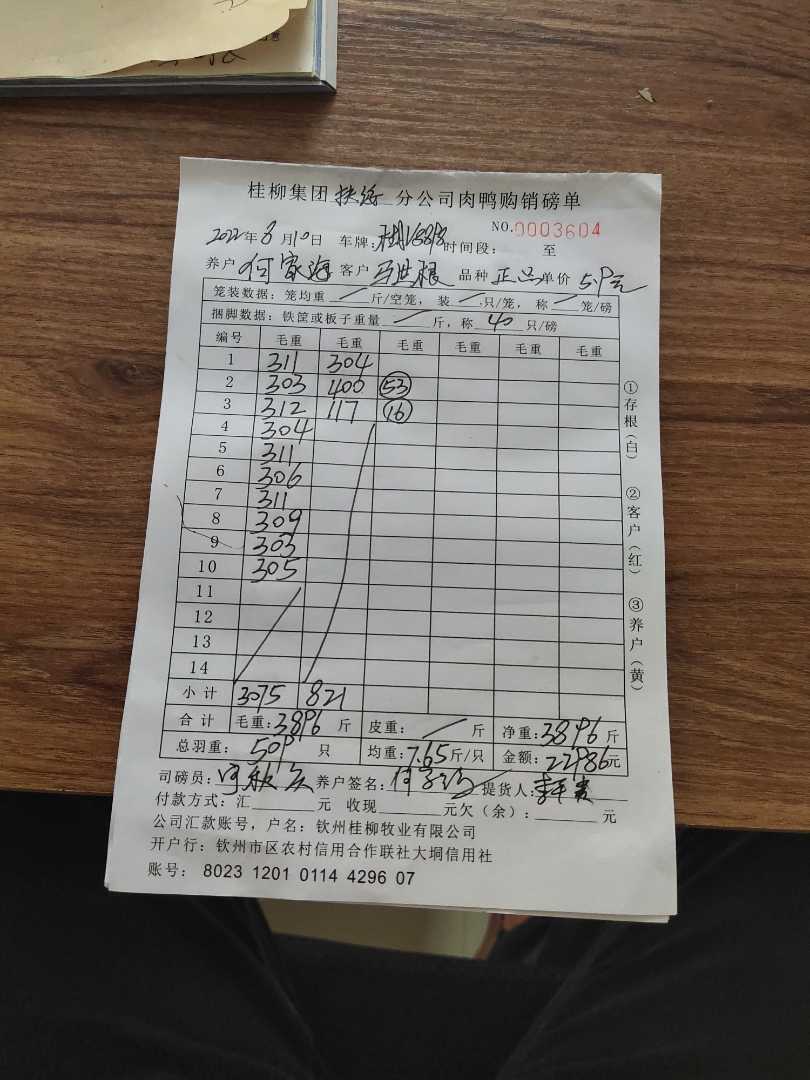 桂柳集团 分公司肉鸭购销磅单
NO.0003604
2022年8月10日 车牌: 时间段: 至
养户 何家海 客户 马世根 品种 正品 单价 5.9元
笼装数据：笼均重 斤/空笼，装 只/笼，称 笼/磅
捆脚数据：铁筐或板子重量 斤，称 40 只/磅
编号 毛重 毛重 毛重 毛重 毛重 毛重
1 311 304
2 303 400 53
3 312 117 16
4 304
5 311
6 306
7 311
8 309
9 303
10 305
11
12
13
14
小计 3075 821
合计 毛重: 3896 斤 皮重: 斤 净重: 3896 斤
总羽重: 509 只 均重: 7.65 斤/只 金额: 22986元
司磅员: 养户签名: 提货人:
付款方式：汇 元 收现 元欠（余）： 元
公司汇款账号，户名：钦州桂柳牧业有限公司
开户行：钦州市区农村信用合作联社大垌信用社
账号： 8023 1201 0114 4296 07
①存根（白）
②客户（红）
③养户（黄）